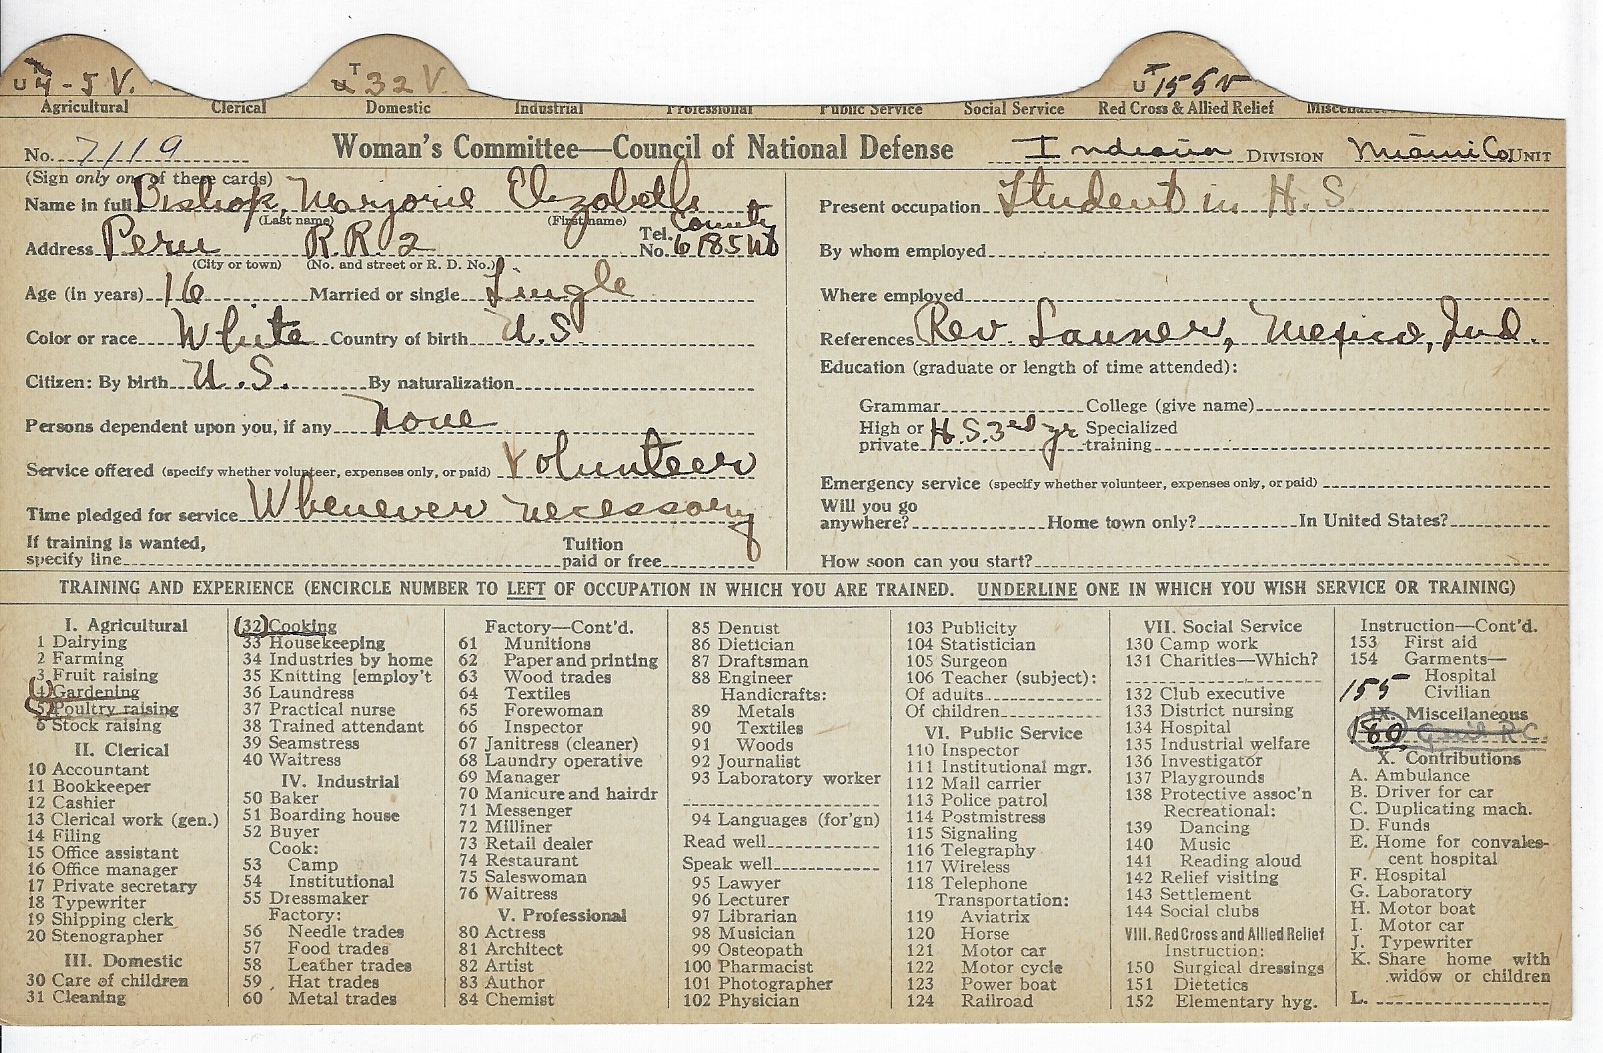 U 4-5 V.
U T 32 V.
U T 155 V
Agricultural Clerical Domestic Industrial Professional Public Service Social Service Red Cross & Allied Relief
No. 7119 Woman's Committee—Council of National Defense Indiana DIVISION Miami Co. UNIT
(Sign only one of these cards)
Name in full Bishop, Marjorie Elizabeth
(Last name) (First name)
Address Peru R.R. 2 Tel. No. County 6185
(City or town) (No. and street or R. D. No.)
Age (in years) 16 Married or single Single
Color or race White Country of birth U.S
Citizen: By birth U.S. By naturalization
Persons dependent upon you, if any None
Service offered (specify whether volunteer, expenses only, or paid) Volunteer
Time pledged for service Whenever necessary
If training is wanted,
specify line Tuition paid or free
Present occupation Student in H.S
By whom employed
Where employed
References Rev. Launer, Mexico, Ind.
Education (graduate or length of time attended):
Grammar College (give name)
High or private H.S. 3rd yr Specialized training
Emergency service (specify whether volunteer, expenses only, or paid)
Will you go
anywhere? Home town only? In United States?
How soon can you start?
TRAINING AND EXPERIENCE (ENCIRCLE NUMBER TO LEFT OF OCCUPATION IN WHICH YOU ARE TRAINED. UNDERLINE ONE IN WHICH YOU WISH SERVICE OR TRAINING)
I. Agricultural
1 Dairying
2 Farming
3 Fruit raising
(4) Gardening
(5) Poultry raising
6 Stock raising
II. Clerical
10 Accountant
11 Bookkeeper
12 Cashier
13 Clerical work (gen.)
14 Filing
15 Office assistant
16 Office manager
17 Private secretary
18 Typewriter
19 Shipping clerk
20 Stenographer
III. Domestic
30 Care of children
31 Cleaning
(32) Cooking
33 Housekeeping
34 Industries by home
35 Knitting [employ't
36 Laundress
37 Practical nurse
38 Trained attendant
39 Seamstress
40 Waitress
IV. Industrial
50 Baker
51 Boarding house
52 Buyer
Cook:
53 Camp
54 Institutional
55 Dressmaker
Factory:
56 Needle trades
57 Food trades
58 Leather trades
59 Hat trades
60 Metal trades
Factory—Cont'd.
61 Munitions
62 Paper and printing
63 Wood trades
64 Textiles
65 Forewoman
66 Inspector
67 Janitress (cleaner)
68 Laundry operative
69 Manager
70 Manicure and hairdr
71 Messenger
72 Milliner
73 Retail dealer
74 Restaurant
75 Saleswoman
76 Waitress
V. Professional
80 Actress
81 Architect
82 Artist
83 Author
84 Chemist
85 Dentist
86 Dietician
87 Draftsman
88 Engineer
Handicrafts:
89 Metals
90 Textiles
91 Woods
92 Journalist
93 Laboratory worker
94 Languages (for'gn)
Read well
Speak well
95 Lawyer
96 Lecturer
97 Librarian
98 Musician
99 Osteopath
100 Pharmacist
101 Photographer
102 Physician
103 Publicity
104 Statistician
105 Surgeon
106 Teacher (subject):
Of adults
Of children
VI. Public Service
110 Inspector
111 Institutional mgr.
112 Mail carrier
113 Police patrol
114 Postmistress
115 Signaling
116 Telegraphy
117 Wireless
118 Telephone
Transportation:
119 Aviatrix
120 Horse
121 Motor car
122 Motor cycle
123 Power boat
124 Railroad
VII. Social Service
130 Camp work
131 Charities—Which?
132 Club executive
133 District nursing
134 Hospital
135 Industrial welfare
136 Investigator
137 Playgrounds
138 Protective assoc'n
Recreational:
139 Dancing
140 Music
141 Reading aloud
142 Relief visiting
143 Settlement
144 Social clubs
VIII. Red Cross and Allied Relief
Instruction:
150 Surgical dressings
151 Dietetics
152 Elementary hyg.
Instruction—Cont'd.
153 First aid
154 Garments—
Hospital
155 Civilian
IX. Miscellaneous
160 R.C.
X. Contributions
A. Ambulance
B. Driver for car
C. Duplicating mach.
D. Funds
E. Home for convales-
cent hospital
F. Hospital
G. Laboratory
H. Motor boat
I. Motor car
J. Typewriter
K. Share home with
widow or children
L.